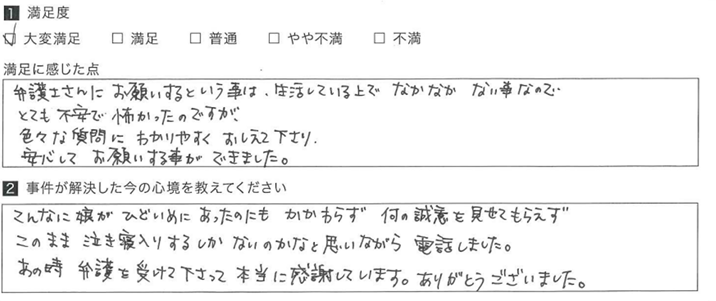 1 満足度
☑ 大変満足 □ 満足 □ 普通 □ やや不満 □ 不満
満足に感じた点
弁護士さんに お願いするという事は、生活している上で なかなか ない事なので
とても 不安で 怖かったのですが、
色々な質問に わかりやすく おしえて下さり、
安心して お願いする事が できました。
2 事件が解決した今の心境を教えてください
こんなに 娘が ひどいめに あったのにも かかわらず 何の誠意を見せてもらえず
このまま 泣き寝入りするしか ないのかなと思いながら 電話しました。
あの時 弁護を受けて下さって 本当に感謝しています。ありがとうございました。